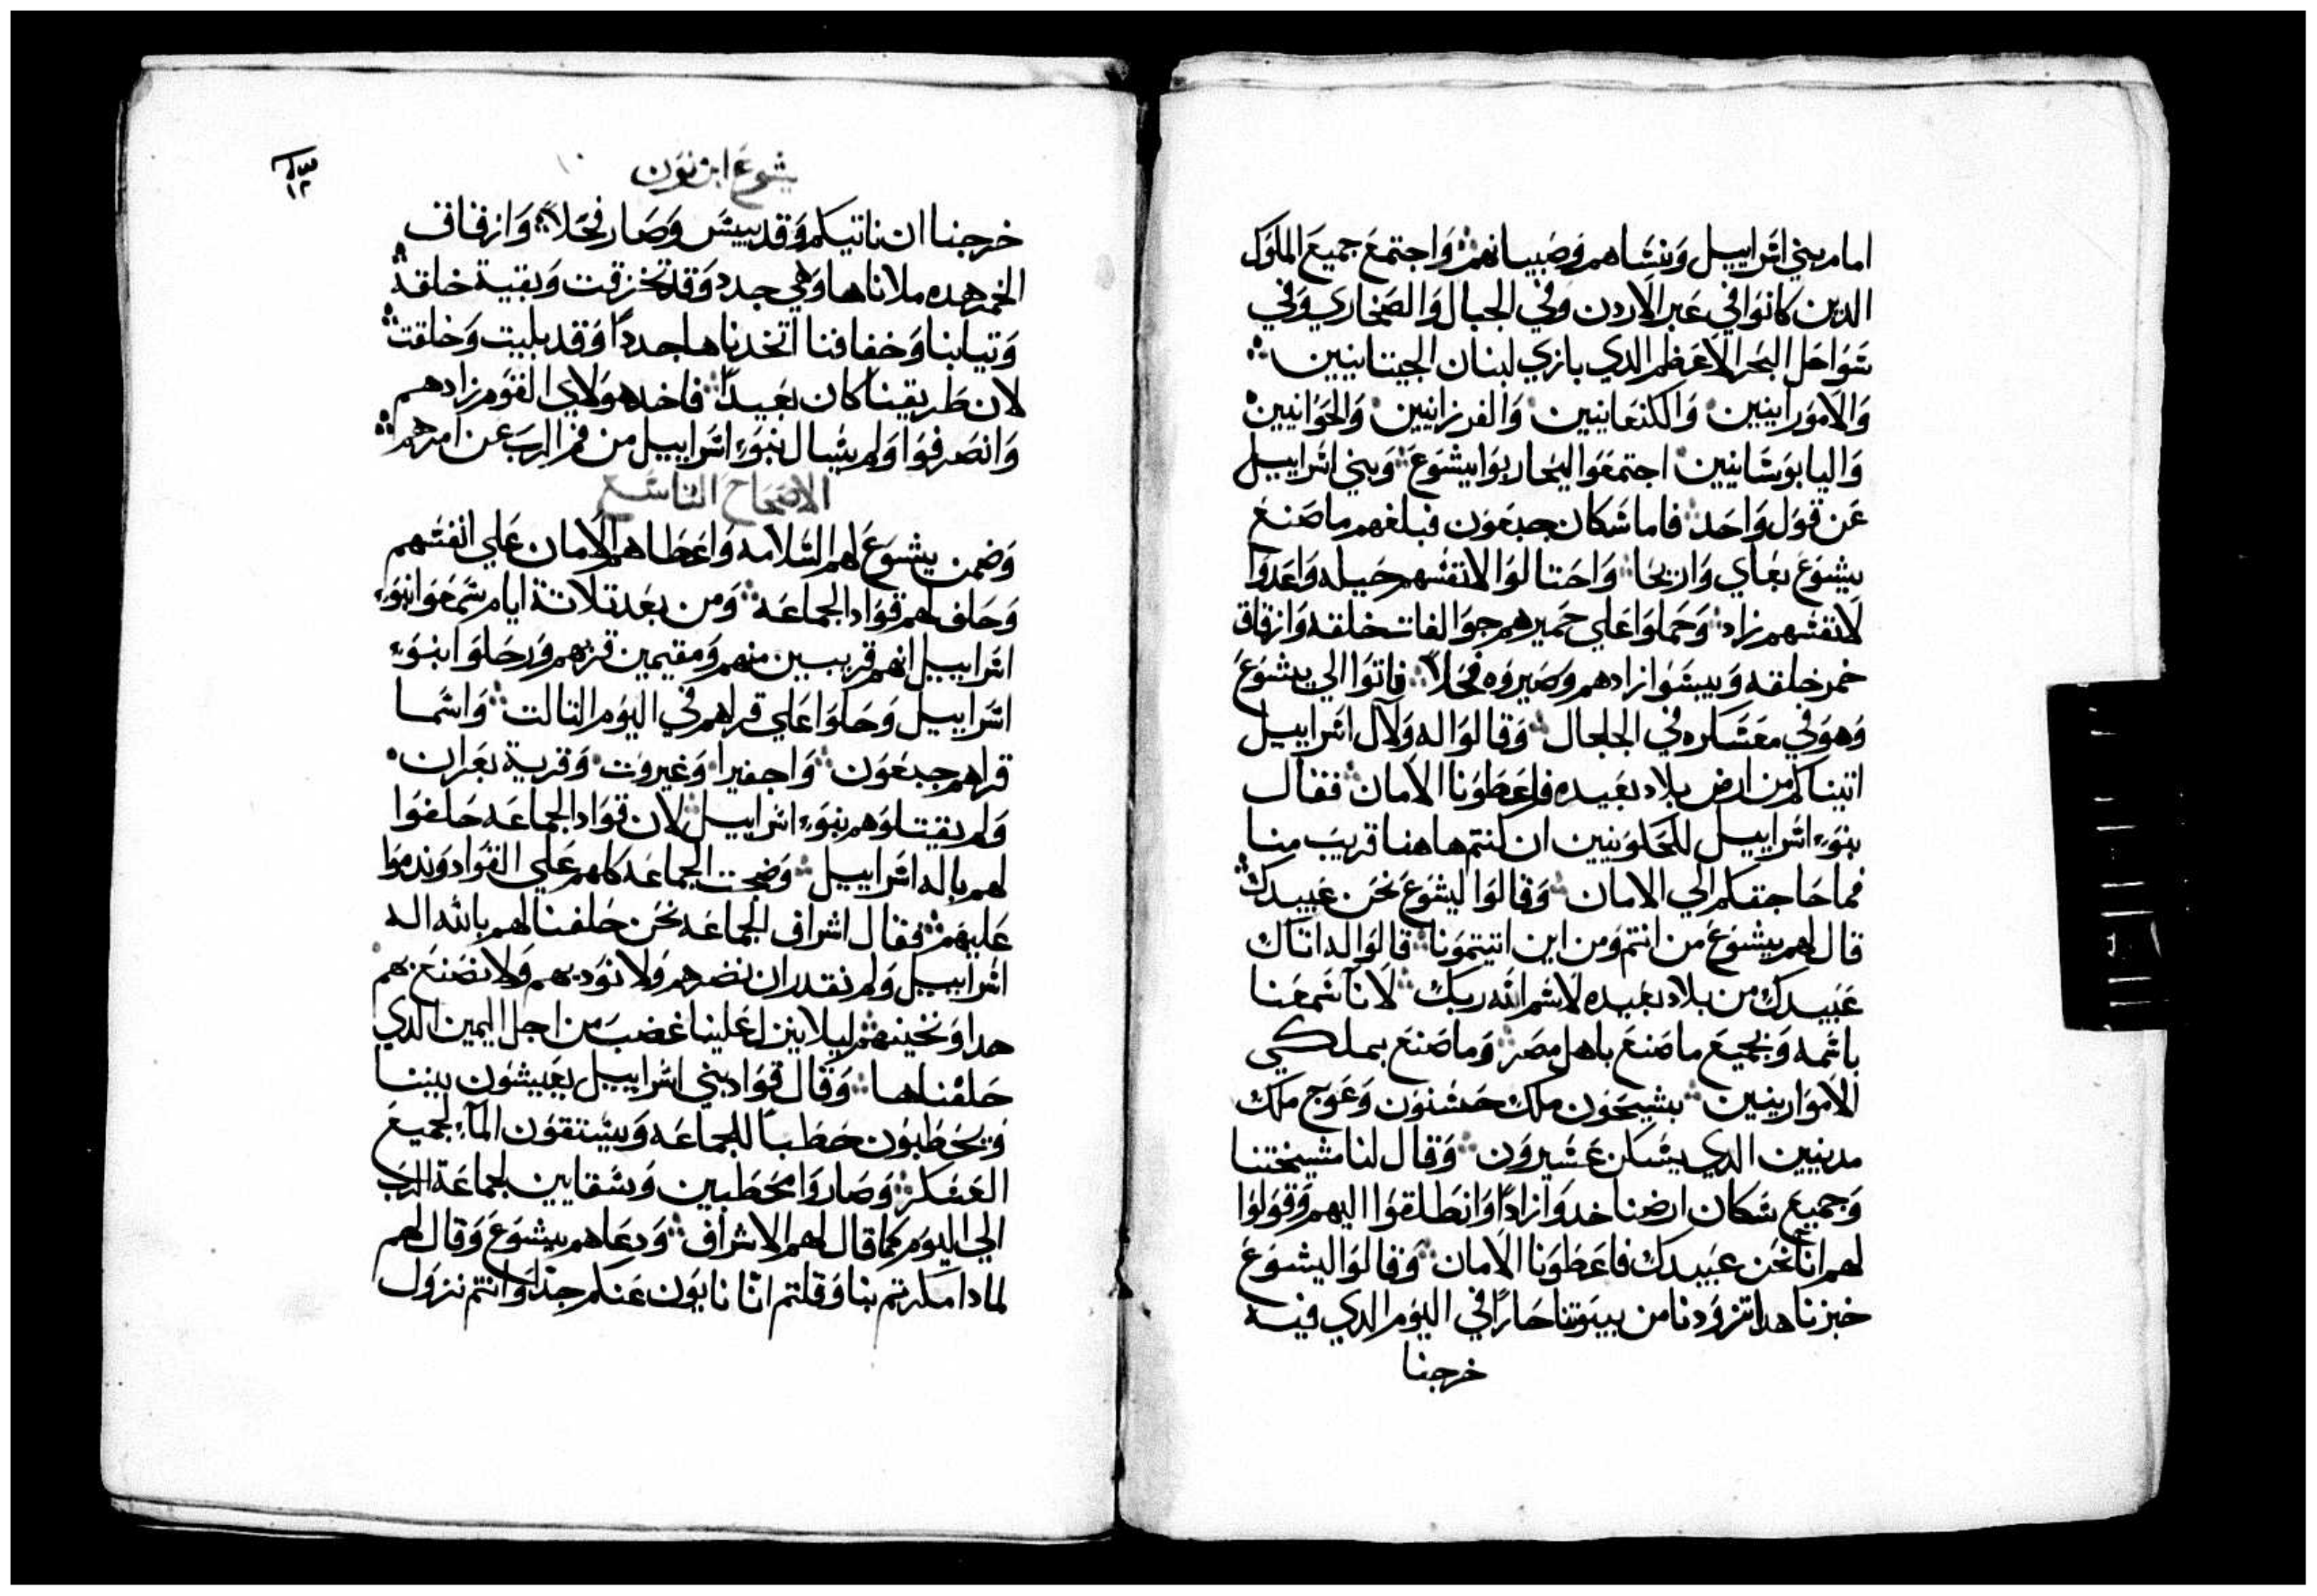 امام بني اسراييل ونساهم وصبيانهم واجتمع جميع الملوك
الدين كانوا في عبر الاردن وفي الجبال والصحاري وفي
سواحل البحر الاعظم الدي بازي لبنان الجيتانيين
والاموراينيين والكنعانيين والفرزانيين والحوانيين
واليابوسانيين اجتمعوا ليحاربوا يشوع وبني اسراييل
عن قول واحد فاما سكان جبعون فبلغهم ما صنع
يشوع بعاي واريحا واحتالوا لانفسهم حيله واعدوا
لانفسهم زاد وحملوا علي حميرهم جوالقات خلقه وازقاق
خمر خلقه ويبسوا زادهم وصيروه فحلاً فاتوا الي يشوع
وهو في معسكره في الجلجال وقالوا له ولآل اسراييل
اتيناكم من ارض بلاد بعيده فاعطونا الامان فقال
بنوء اسراييل للحلوينيين ان كنتم هاهنا قريب منا
فما حاجتكم الي الامان وقالوا ليشوع نحن عبيدك
قال لهم يشوع من انتم ومن اين اتيتمونا قالوا له اتاك
عبيدك من بلاد بعيده لاسم الله ربك لانا سمعنا
باسمه وبجميع ما صنع باهل مصر وما صنع بملكي
الاموارينيين بشيحون ملك حسنون وعوج ملك
مدينيين الدي يسكن عشيرون وقال لنا مشيختنا
وجميع سكان ارضنا خدوا زاداً وانطلقوا اليهم وقولوا
لهم انا نحن عبيدك فاعطونا الامان وقالوا ليشوع
خبزنا هدا تزودنا من بيوتنا حاراً في اليوم الدي فيه
خرجنا
يشوع ابن نون
١٢
خرجنا ان ناتيكم وقد يبس وصار فحلاً وازقاق
الخمر هده ملاناها وهي جدد وقد تخزقت وبقية خلقه
وتيابنا وخفافنا اتخدناها جدداً وقد بليت وخلقت
لان طريقنا كان بعيداً فاخد هولاي القوم زادهم
وانصرفوا ولم يسال بنوء اسراييل من فم الرب عن امرهم
الاصحاح التاسع
وضمن يشوع لهم السلامه واعطاهم الامان علي انفسهم
وحلف لهم قواد الجماعه ومن بعد تلاتة ايام سمعوا بنوء
اسراييل انهم قريبين منهم ومقيمين قربهم ورحلوا بنوء
اسراييل وحلوا علي قراهم في اليوم التالت واسما
قراهم جبعون واجفيرا وغيروت وقرية بعران
ولم يقتلوهم بنوء اسراييل لان قواد الجماعه حلفوا
لهم باله اسراييل وضجت الجماعه كلهم علي القواد وندموا
عليهم فقال اشراف الجماعه نحن حلفنا لهم بالله اله
اسراييل ولم نقدر ان نضرهم ولا نوديهم ولا نصنع بهم
هدا ونخينهم ليلا ينزل علينا غضب من اجل اليمين الدي
حلفناها وقال قواد بني اسراييل يعيشون بيننا
ويحطبون حطباً للجماعه ويستقون المآء لجميع
العسكر وصاروا محطبين وسقايين لجماعة الرب
الي اليوم كما قال لهم الاشراف ودعاهم يشوع وقال لهم
لمادا مكرتم بنا وقلتم انّا نايون عنكم جداً وانتم نزول